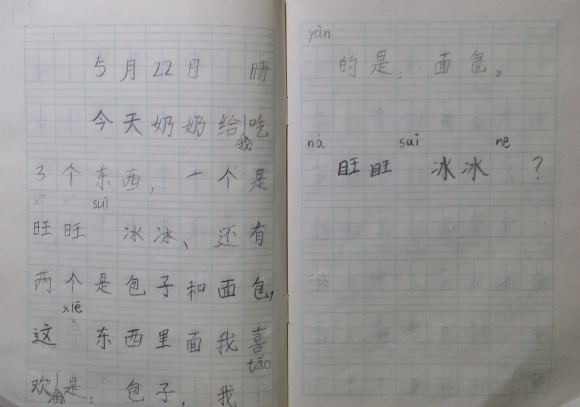 5月22日 晴
今天奶奶给我吃
3个东西,一个是
suì
旺旺 冰冰、还有
两个是包子和面包,
xiē
这 东西里面我喜
tǎo
欢的是:包子,我
yàn
的是:面包。
nà suì ne
旺旺 冰冰 ?